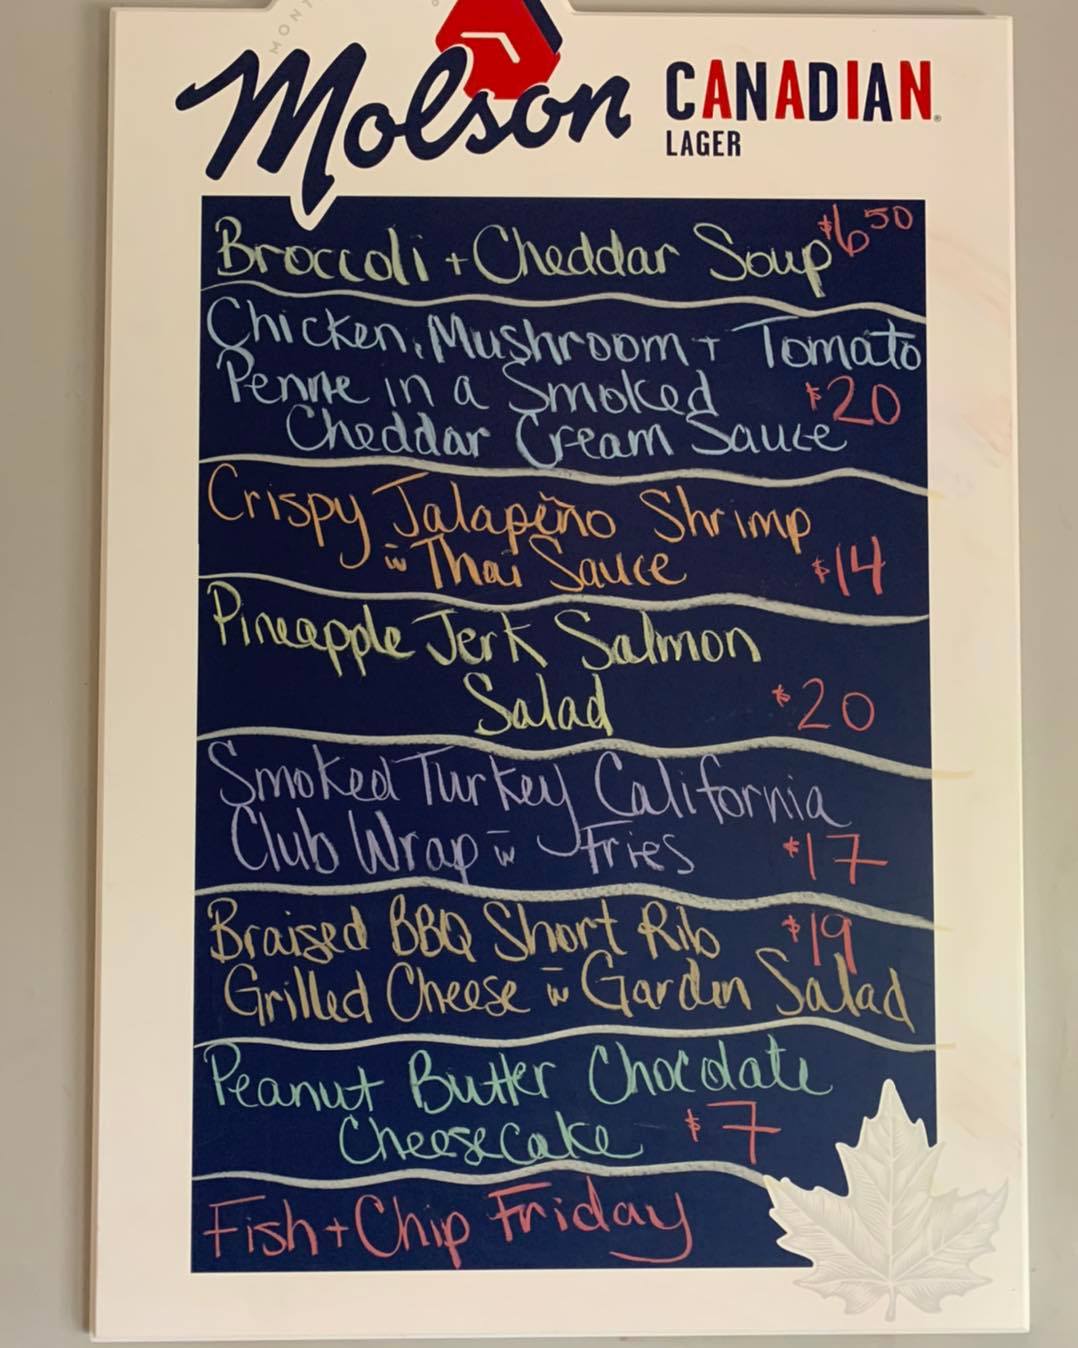 MONT
Molson CANADIAN®
LAGER
Broccoli + Cheddar Soup $6 50
Chicken, Mushroom + Tomato
Penne in a Smoked $20
Cheddar Cream Sauce
Crispy Jalapeño Shrimp
w̄ Thai Sauce $14
Pineapple Jerk Salmon
Salad $20
Smoked Turkey California
Club Wrap w̄ Fries $17
Braised BBQ Short Rib $19
Grilled Cheese w̄ Garden Salad
Peanut Butter Chocolate
Cheesecake $7
Fish + Chip Friday